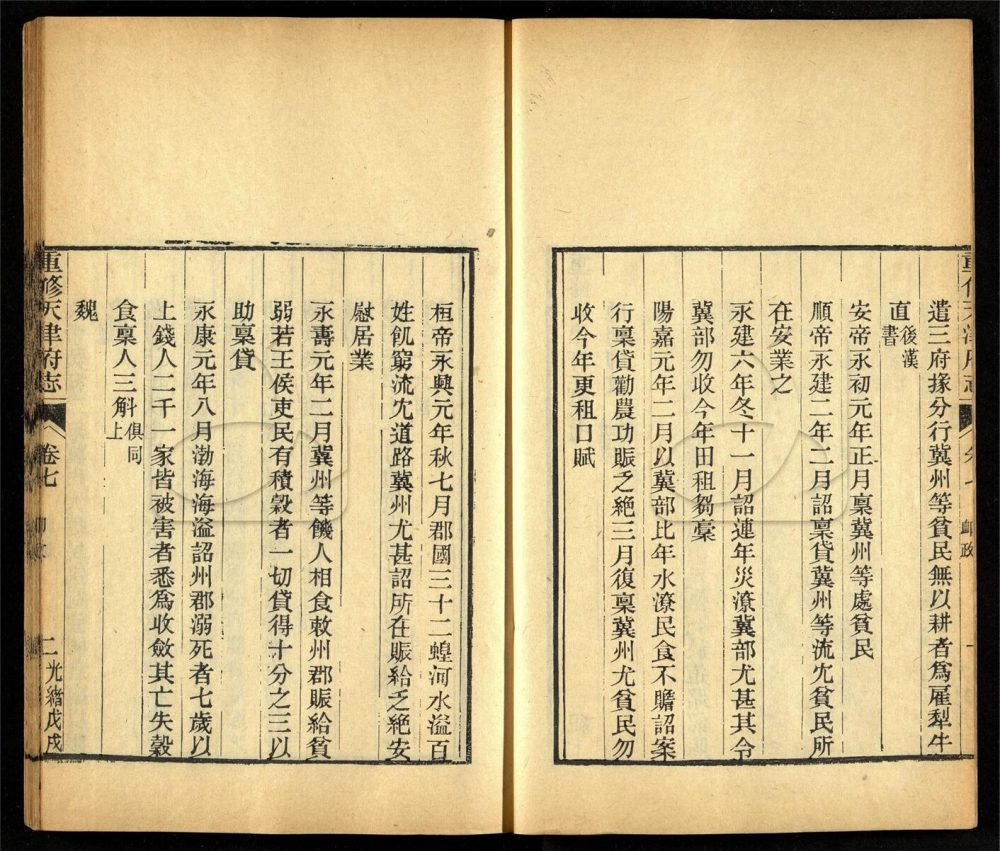 遣三府掾分行冀州等貧民無以耕者爲雇犁牛
直後漢書
安帝永初元年正月稟冀州等處貧民
順帝永建二年二月詔稟貸冀州等流宂貧民所
在安業之
永建六年冬十一月詔連年災潦冀部尤甚其令
冀部勿收今年田租芻稾
陽嘉元年二月以冀部比年水潦民食不贍詔案
行稟貸勸農功賑乏絕三月復稟冀州尤貧民勿
收今年更租口賦
桓帝永興元年秋七月郡國三十二蝗河水溢百
姓飢窮流宂道路冀州尤甚詔所在賑給乏絕安
慰居業
永壽元年二月冀州等饑人相食敕州郡賑給貧
弱若王侯吏民有積穀者一切貸得十分之三以
助稟貸
永康元年八月渤海海溢詔州郡溺死者七歲以
上錢人二千一家皆被害者悉爲收斂其亡失穀
食稟人三斛俱同上
魏
重修天津府志 卷七 二 光緒戊戌